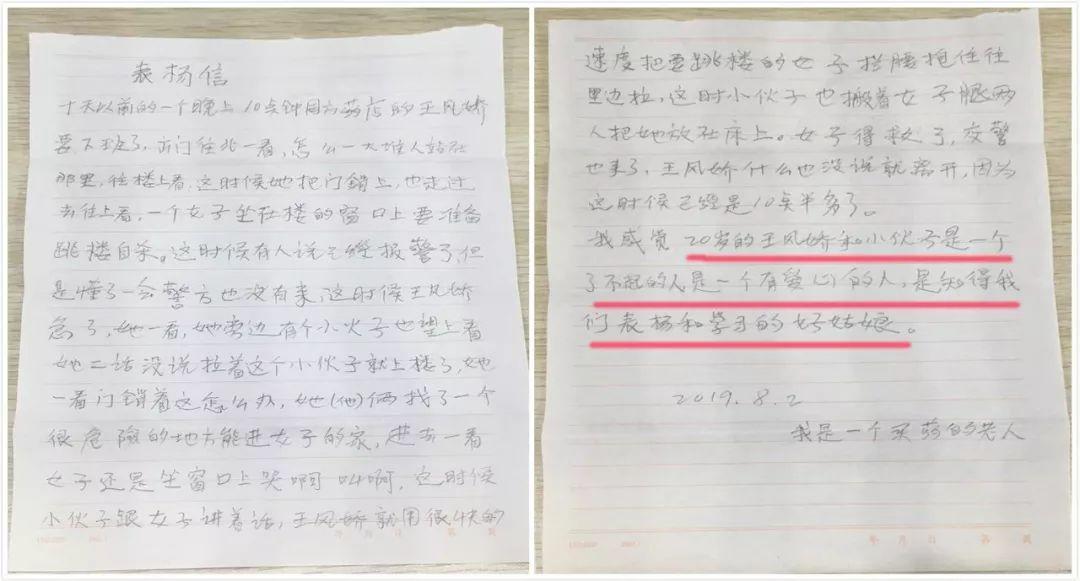 表扬信
十天以前的一个晚上10点钟同方药店的王风娇
要下班了，方门往北一看，怎么一大堆人站在
那里，往楼上看，这时候她把门锁上，也走过
去往上看，一个女子坐在楼的窗口上要准备
跳楼自杀。这时候有人说已经报警了，但
是懂了一会警方也没有来，这时候王风娇
急了，她一看，她旁边有个小伙子也望上看
她二话没说拉着这个小伙子就上楼了，她
一看门锁着这怎么办，她(他)俩找了一个
很危险的地方能进女子的家，进去一看
女子还是坐窗口上哭啊叫啊，这时候
小伙子跟女子讲着话，王风娇就用很快的
年 月 日 第 页
速度把要跳楼的女子拦腰抱住往
里边拉，这时小伙子也搬着女子腿两
人把她放在床上。女子得救了，交警
也来了，王风娇什么也没说就离开，因为
这时候已经是10点半多了。
我感觉20岁的王风娇和小伙子是一个
了不起的人是一个有爱心的人，是知得我
们表扬和学习的好姑娘。
2019.8.2
我是一个买药的老人
年 月 日 第 页